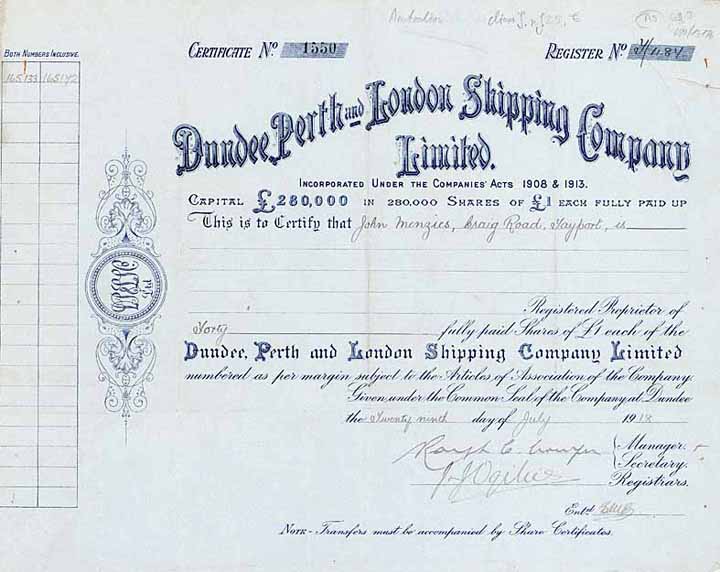 Certificate No. 1550
Register No.
Both Numbers Inclusive.
165133 165172
Dundee, Perth and London Shipping Company
Limited.
Incorporated Under the Companies' Acts 1908 & 1913.
Capital £280,000 in 280,000 Shares of £1 each fully paid up
This is to Certify that John Menzies, Craig Road, Tayport, is
Registered Proprietor of
Forty fully paid Shares of £1 each of the
Dundee, Perth and London Shipping Company Limited
numbered as per margin subject to the Articles of Association of the Company.
Given under the Common Seal of the Company at Dundee
the Twenty ninth day of July 1918
Manager.
Secretary.
Registrars.
Entd.
Note - Transfers must be accompanied by Share Certificates.
Ltd